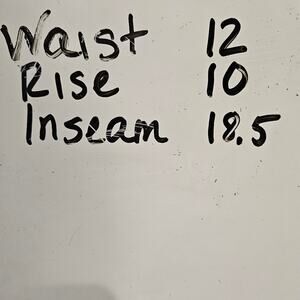 Waist 12
Rise 10
Inseam 18.5